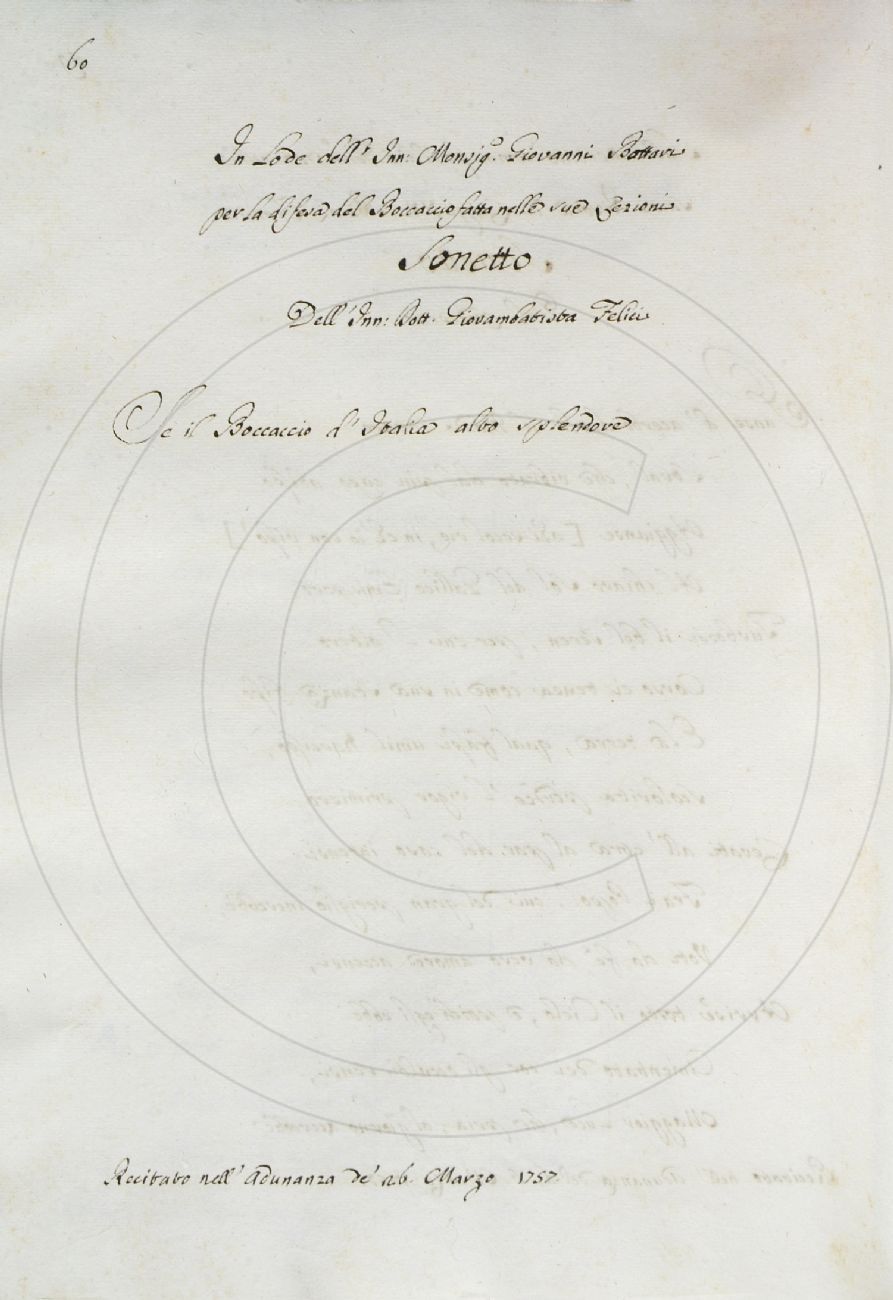 60
In Lode dell' Inn: Monsigr. Giovanni Bottari
per la difesa del Boccaccio fatta nelle sue Lezioni
Sonetto.
Dell' Inn: Dott. Giovambatista Felici
Se il Boccaccio d' Italia alto splendore
Recitato nell' Adunanza de' 26. Marzo 1757